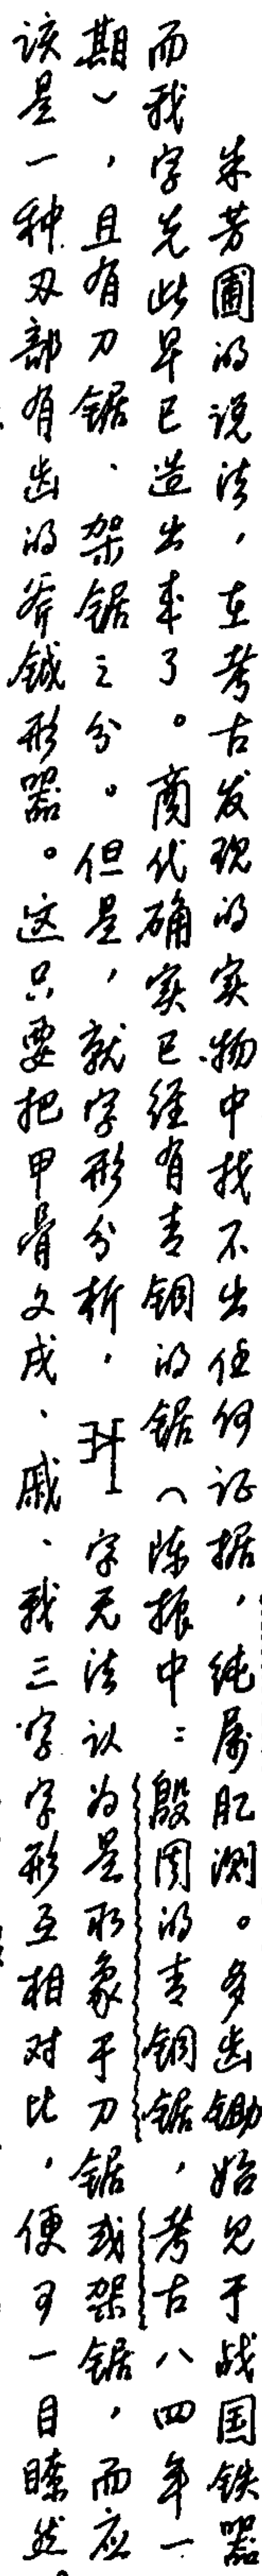 朱芳圃的说法，在考古发现的实物中找不出任何证据，纯属肊测。多齿锄始见于战国铁器
而我字先此早已造出来了。商代确实已经有青铜的锯（陈振中：殷周的青铜锯，考古八四年一
期），且有刀锯、架锯之分。但是，就字形分析，字无法认为是取象于刀锯或架锯，而应
该是一种刃部有齿的斧钺形器。这只要把甲骨文戌、戚、我三字字形互相对比，便可一目瞭然。